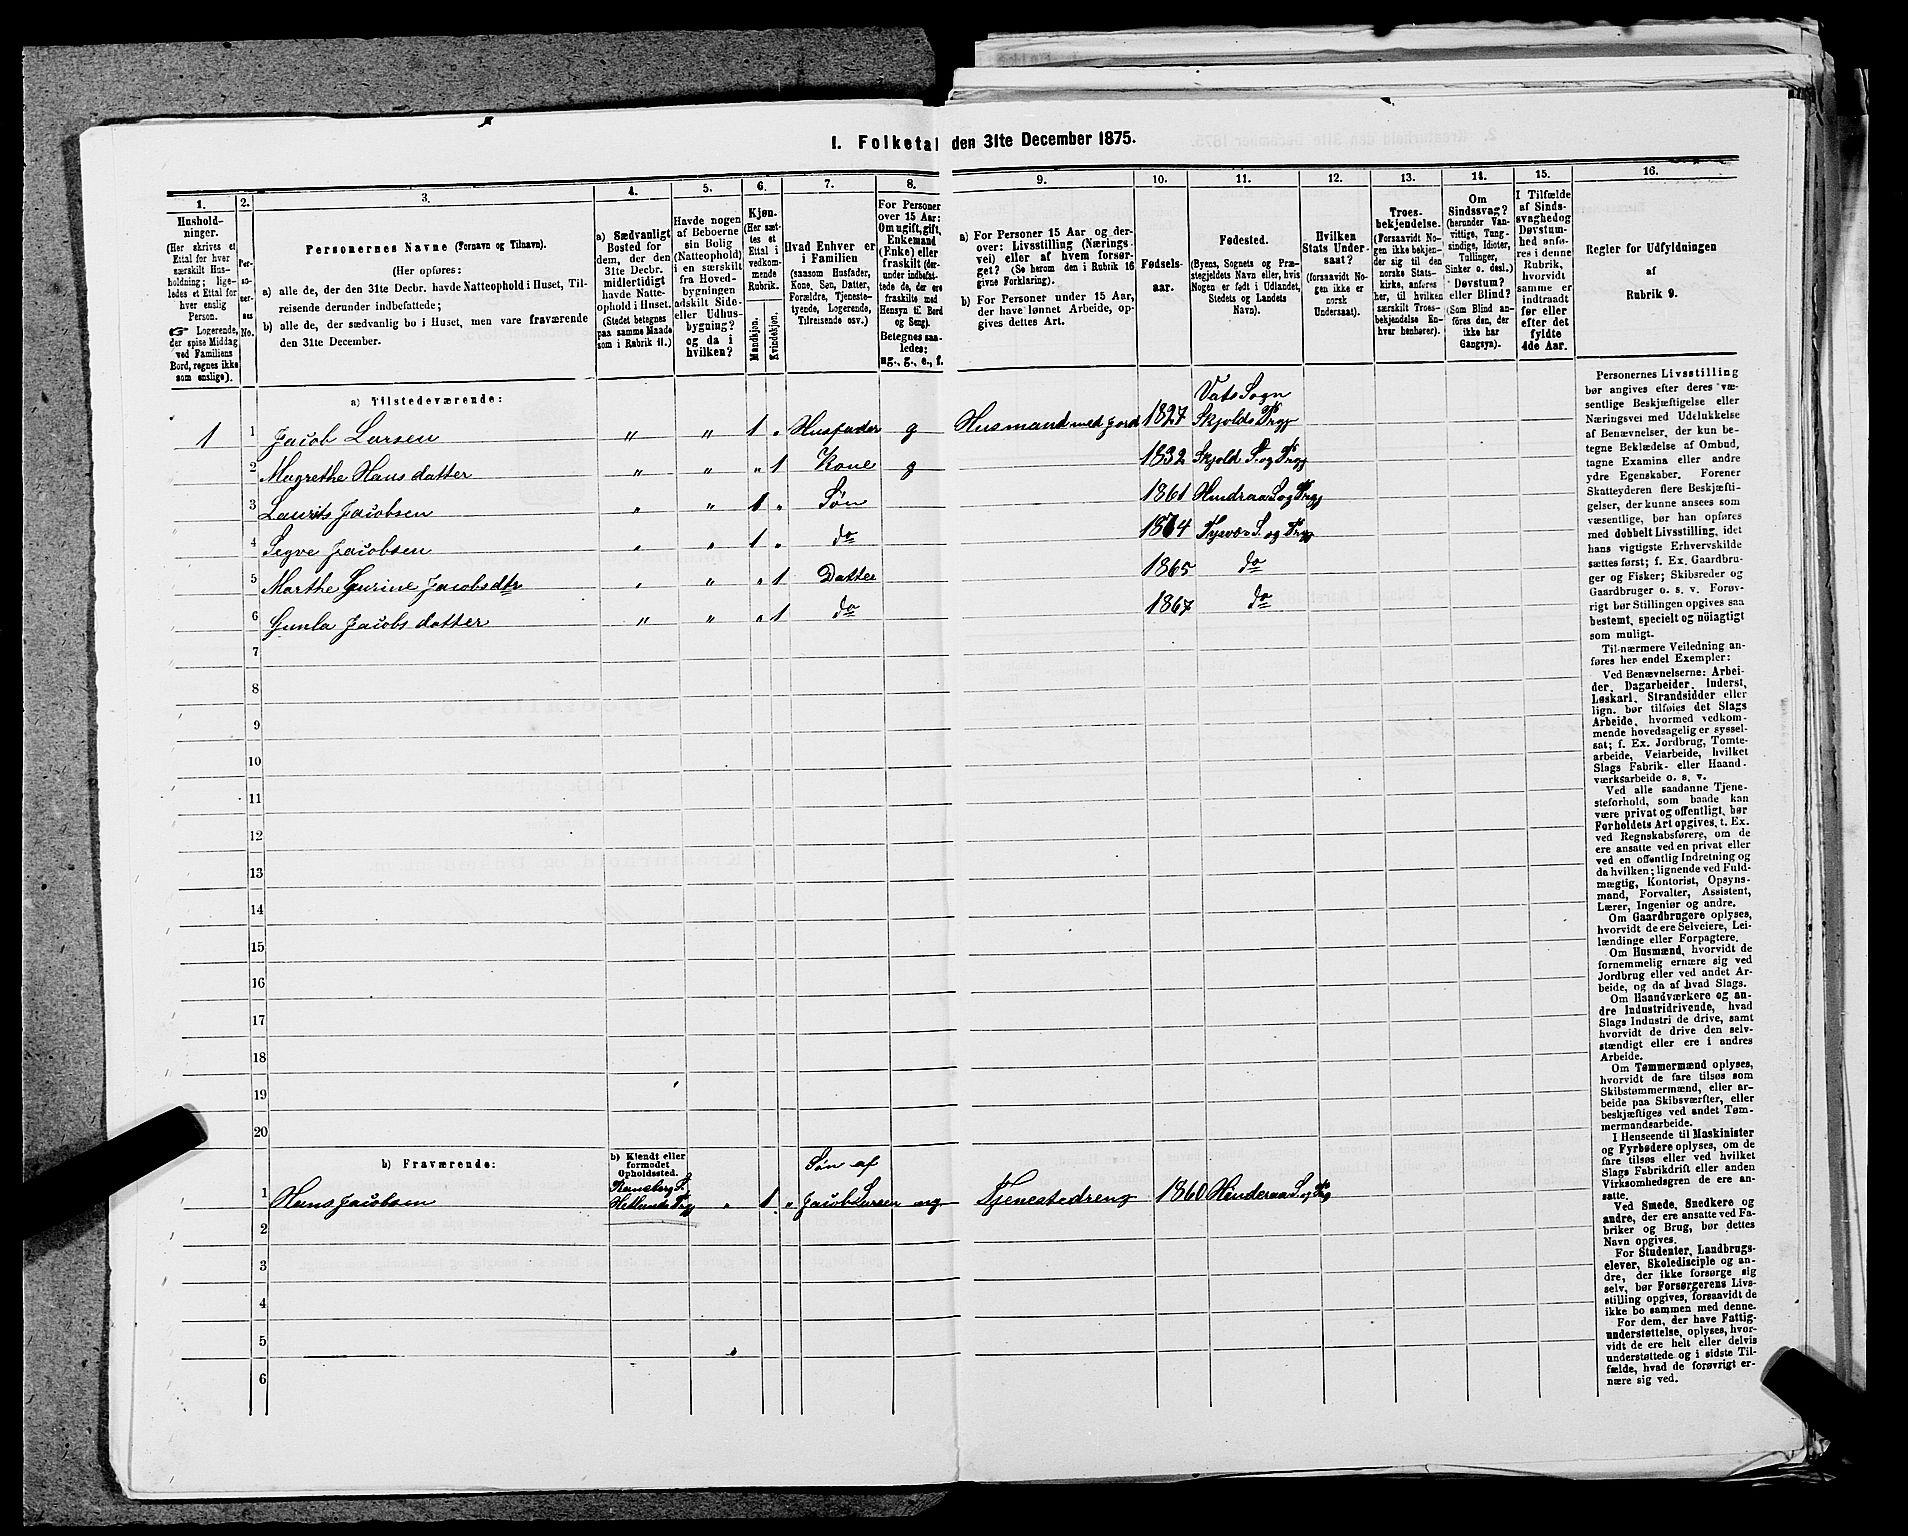 I. Folketal den 31te December 1875.
1. 2. 3. 4. 5. 6. 7. 8. 9. 10. 11. 12. 13. 14. 15. 16.
Hushold-
ninger.
(Her skrives et
Ettal for hver
særskilt Hus-
holdning; lige-
ledes et Ettal for
hver enslig
Person.
☞ Logerende,
der spise Middag
ved Familiens
Bord, regnes ikke
som enslige).
Per-
so-
ner-
nes
No.
Personernes Navne (Fornavn og Tilnavn).
(Her opføres:
a) alle de, der den 31te Decbr. havde Natteophold i Huset, Til-
reisende derunder indbefattede;
b) alle de, der sædvanlig bo i Huset, men vare fraværende
den 31te December.
a) Sædvanligt
Bosted for
dem, der den
31te Decbr.
midlertidigt
havde Natte-
ophold i Huset.
(Stedet betegnes
paa samme Maade
som i Rubrik 11.)
Havde nogen
af Beboerne
sin Bolig
(Natteophold)
i en særskilt
fra Hoved-
bygningen
adskilt Side-
eller Udhus-
bygning?
og da i
hvilken?
Kjøn.
(Her sæt-
tes et
Ettal i
vedkom-
mende
Rubrik.
Mandkjøn.
Kvindekjøn.
Hvad Enhver er
i Familien
(saasom Husfader,
Kone, Søn, Datter,
Forældre, Tjeneste-
tyende, Logerende,
Tilreisende osv.)
For Personer
over 15 Aar:
Om ugift, gift,
Enkemand
(Enke) eller
fraskilt (der-
under indbefat-
tede de, der ere
fraskilte med
Hensyn til Bord
og Seng).
Betegnes saa-
ledes:
ug., g., e., f.
a) For Personer 15 Aar og der-
over: Livsstilling (Nærings-
vei) eller af hvem forsør-
get? (Se herom den i Rubrik 16
givne Forklaring).
b) For Personer under 15 Aar,
der have lønnet Arbeide, op-
gives dettes Art.
Fødsels-
aar.
Fødested.
(Byens, Sognets og Præ-
stegjeldets Navn eller, hvis
Nogen er født i Udlandet,
Stedets og Landets
Navn).
Hvilken
Stats Under-
saat?
(forsaavidt No-
gen ikke er
norsk
Undersaat).
Troes-
bekjendelse.
(Forsaavidt No-
gen ikke bekjen-
der sig til den
norske Stats-
kirke, anføres
her, til hvilken
særskilt Troes-
bekjendelse En-
hver henhører).
Om
Sindssvag?
(herunder Van-
vittige, Tung-
sindige, Idioter,
Tullinger,
Sinker o. desl.)
Døvstum?
eller Blind?
(Som Blind an-
føres den, der
ikke har
Gangsyn).
I Tilfælde
af Sinds-
svaghed og
Døvstum-
hed anfø-
res i denne
Rubrik,
hvorvidt
samme er
indtraadt
før eller
efter det
fyldte
4de Aar.
Regler for Udfyldningen
af
Rubrik 9.
a) Tilstedeværende:
Vats Sogn
1 1 Jacob Larsen " " 1 " Husfader g Husmand med Jord 1827 Skjolds Prgj
2 Magrethe Hans datter " " " 1 Kone g 1832 Skjold S. og Prgj
3 Laurits Jacobsen " " 1 " Søn 1861 Hindraa S. og Prgj
4 Segve Jacobsen " " 1 " do 1864 Tysvær S. og Prgj
5 Marthe Gurine Jacobsdtr " " " 1 Datter 1865 do
6 Gunla Jacobs datter " " " 1 do 1867 do
7
8
9
10
11
12
13
14
15
16
17
18
19
20
b) Fraværende:
b) Kjendt eller
formodet
Opholdssted.
Søn af
1 Hans Jacobsen Hetlands Prgj " 1 " Jacob Larsen ug Tjenestedreng 1860 Hinderaa S. og Prgj
2
3
4
5
6
Personernes Livsstilling
bør angives efter deres væ-
sentlige Beskjæftigelse eller
Næringsvei med Udelukkelse
af Benævnelser, der kun be-
tegne Beklædelse af Ombud,
tagne Examina eller andre
ydre Egenskaber. Forener
Skatteyderen flere Beskjæfti-
gelser, der kunne ansees som
væsentlige, bør han opføres
med dobbelt Livsstilling, idet
hans vigtigste Erhvervskilde
sættes først; f. Ex. Gaardbru-
ger og Fisker; Skibsreder og
Gaardbruger o. s. v. Forøv-
rigt bør Stillingen opgives saa
bestemt, specielt og nöiagtigt
som muligt.
Til nærmere Veiledning an-
føres her endel Exempler:
Ved Benævnelserne: Arbei-
der, Dagarbeider, Inderst,
Løskarl, Strandsidder eller
lign. bør tilføies det Slags
Arbeide, hvormed vedkom-
mende hovedsagelig er syssel-
sat; f. Ex. Jordbrug, Tomte-
arbeide, Veiarbeide, hvilket
Slags Fabrik- eller Haand-
værksarbeide o. s. v.
Ved alle saadanne Tjene-
steforhold, som baade kan
være privat og offentligt, bør
Forholdets Art opgives, t. Ex.
ved Regnskabsførere, om de
ere ansatte ved en privat eller
ved en offentlig Indretning og
da hvilken; lignende ved Fuld-
mægtig, Kontorist, Opsyns-
mand, Forvalter, Assistent,
Lærer, Ingeniør og andre.
Om Gaardbrugere oplyses,
hvorvidt de ere Selveiere, Lei-
lændinge eller Forpagtere.
Om Husmænd, hvorvidt de
fornemmelig ernære sig ved
Jordbrug eller ved andet Ar-
beide, og da af hvad Slags.
Om Haandværkere og an-
dre Industridrivende, hvad
Slags Industri de drive, samt
hvorvidt de drive den selv-
stændigt eller ere i andres
Arbeide.
Om Tømmermænd oplyses,
hvorvidt de fare tilsøs som
Skibstømmermænd, eller ar-
beide paa Skibsværfter, eller
beskjæftiges ved andet Tøm-
mermandsarbeide.
I Henseende til Maskinister
og Fyrbødere oplyses, om de
fare tilsøs eller ved hvilket
Slags Fabrikdrift eller anden
Virksomhedsgren de ere an-
satte.
Ved Smede, Snedkere og
andre, der ere ansatte ved Fa-
briker og Brug, bør dettes
Navn opgives.
For Studenter, Landbrugs-
elever, Skoledisciple og an-
dre, der ikke forsørge sig
selv, bør Forsørgerens Livs-
stilling opgives, forsaavidt de
ikke bo sammen med denne.
For dem, der have Fattig-
understøttelse, oplyses, hvor-
vidt de ere helt eller delvis
understøttede og i sidste Til-
fælde, hvad de forøvrigt er-
nære sig ved.